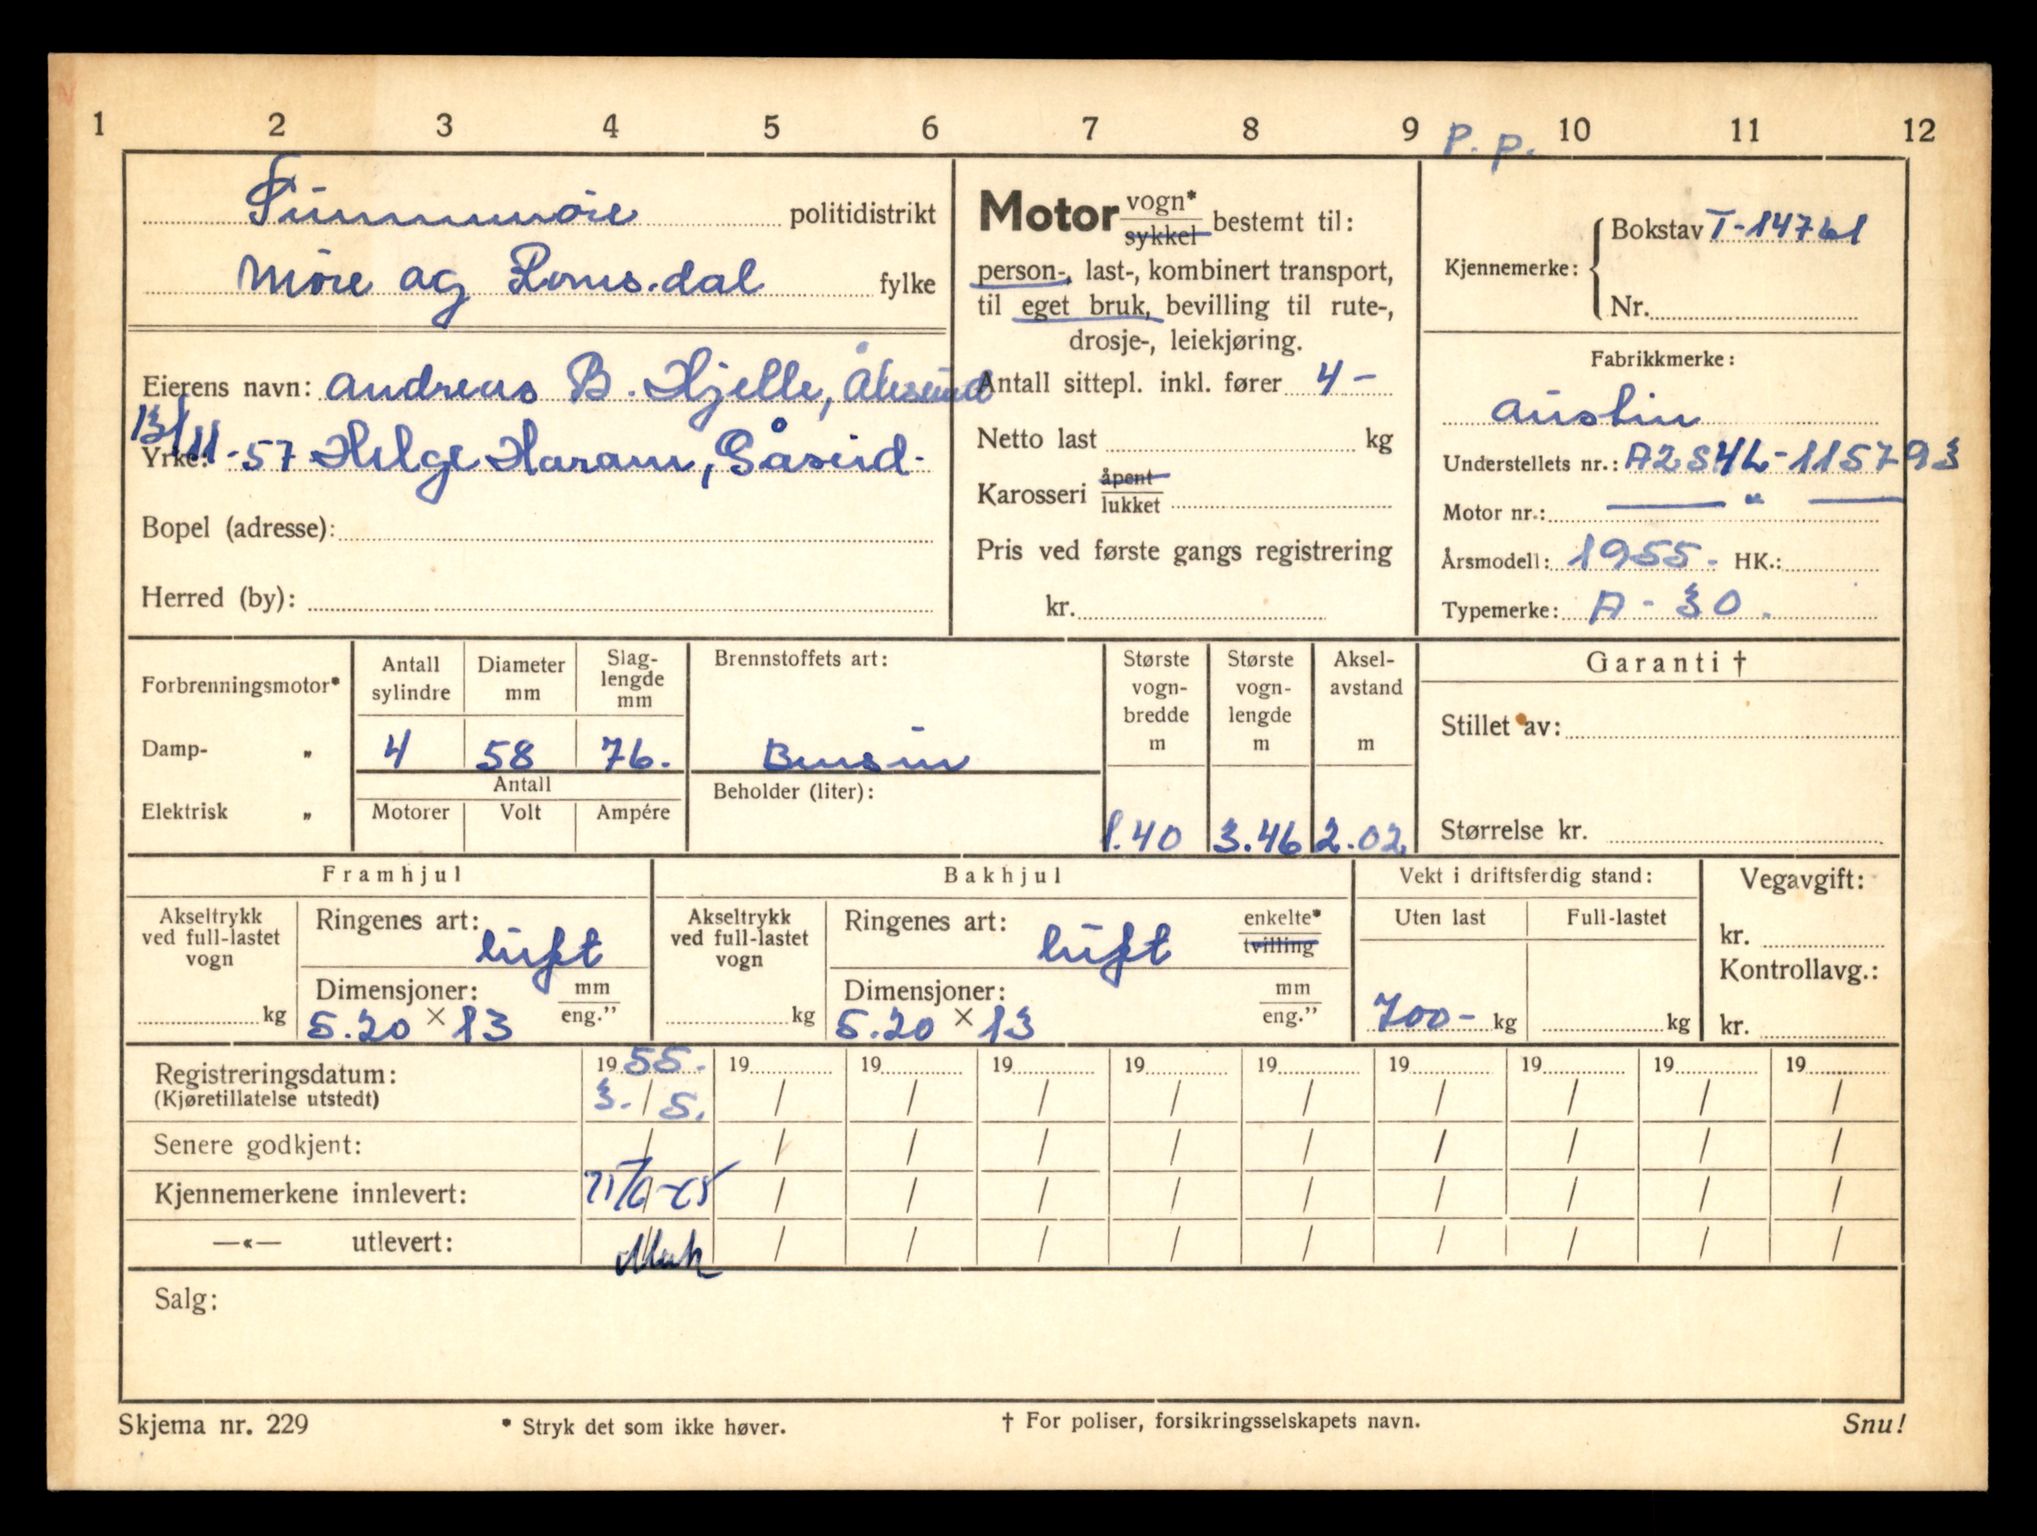 1 2 3 4 5 6 7 8 9 10 11 12
P. P.
Sunnmøre politidistrikt
Møre og Romsdal fylke
Eierens navn: Andreas B. Hjelle, Ålesund
13/11-57 Helge Haram, Gåseid.
Yrke:
Bopel (adresse):
Herred (by):
Motor vogn* sykkel bestemt til:
person-, last-, kombinert transport,
til eget bruk, bevilling til rute-,
drosje-, leiekjøring.
Antall sittepl. inkl. fører 4 -
Netto last kg
Karosseri åpent lukket
Pris ved første gangs registrering
kr.
Kjennemerke: Bokstav T-14761
Nr.
Fabrikkmerke:
Austin
Understellets nr.: A2S4L-115793
Motor nr.: — " —
Årsmodell: 1955. HK.:
Typemerke: A-30.
Forbrenningsmotor*
Damp- „
Elektrisk „
Antall sylindre
4
Diameter mm
58
Slag-lengde mm
76.
Antall
Motorer Volt Ampére
Brennstoffets art:
Bensin
Beholder (liter):
Største vogn-bredde m
1.40
Største vogn-lengde m
3.46
Aksel-avstand m
2.02
Garanti †
Stillet av:
Størrelse kr.
Framhjul
Akseltrykk ved full-lastet vogn
kg
Ringenes art: luft
Dimensjoner: mm eng."
5.20 × 13
Bakhjul
Akseltrykk ved full-lastet vogn
kg
Ringenes art: luft enkelte* tvilling
Dimensjoner: mm eng."
5.20 × 13
Vekt i driftsferdig stand:
Uten last Full-lastet
700- kg kg
Vegavgift:
kr.
Kontrollavg.:
kr.
Registreringsdatum: 1955. 19 19 19 19 19 19 19 19 19
(Kjøretillatelse utstedt) 3. / 5. / / / / / / / / /
Senere godkjent: / / / / / / / / / /
Kjennemerkene innlevert: / / / / / / / / /
—«— utlevert: / / / / / / / / /
Salg:
Skjema nr. 229 * Stryk det som ikke høver. † For poliser, forsikringsselskapets navn. Snu!